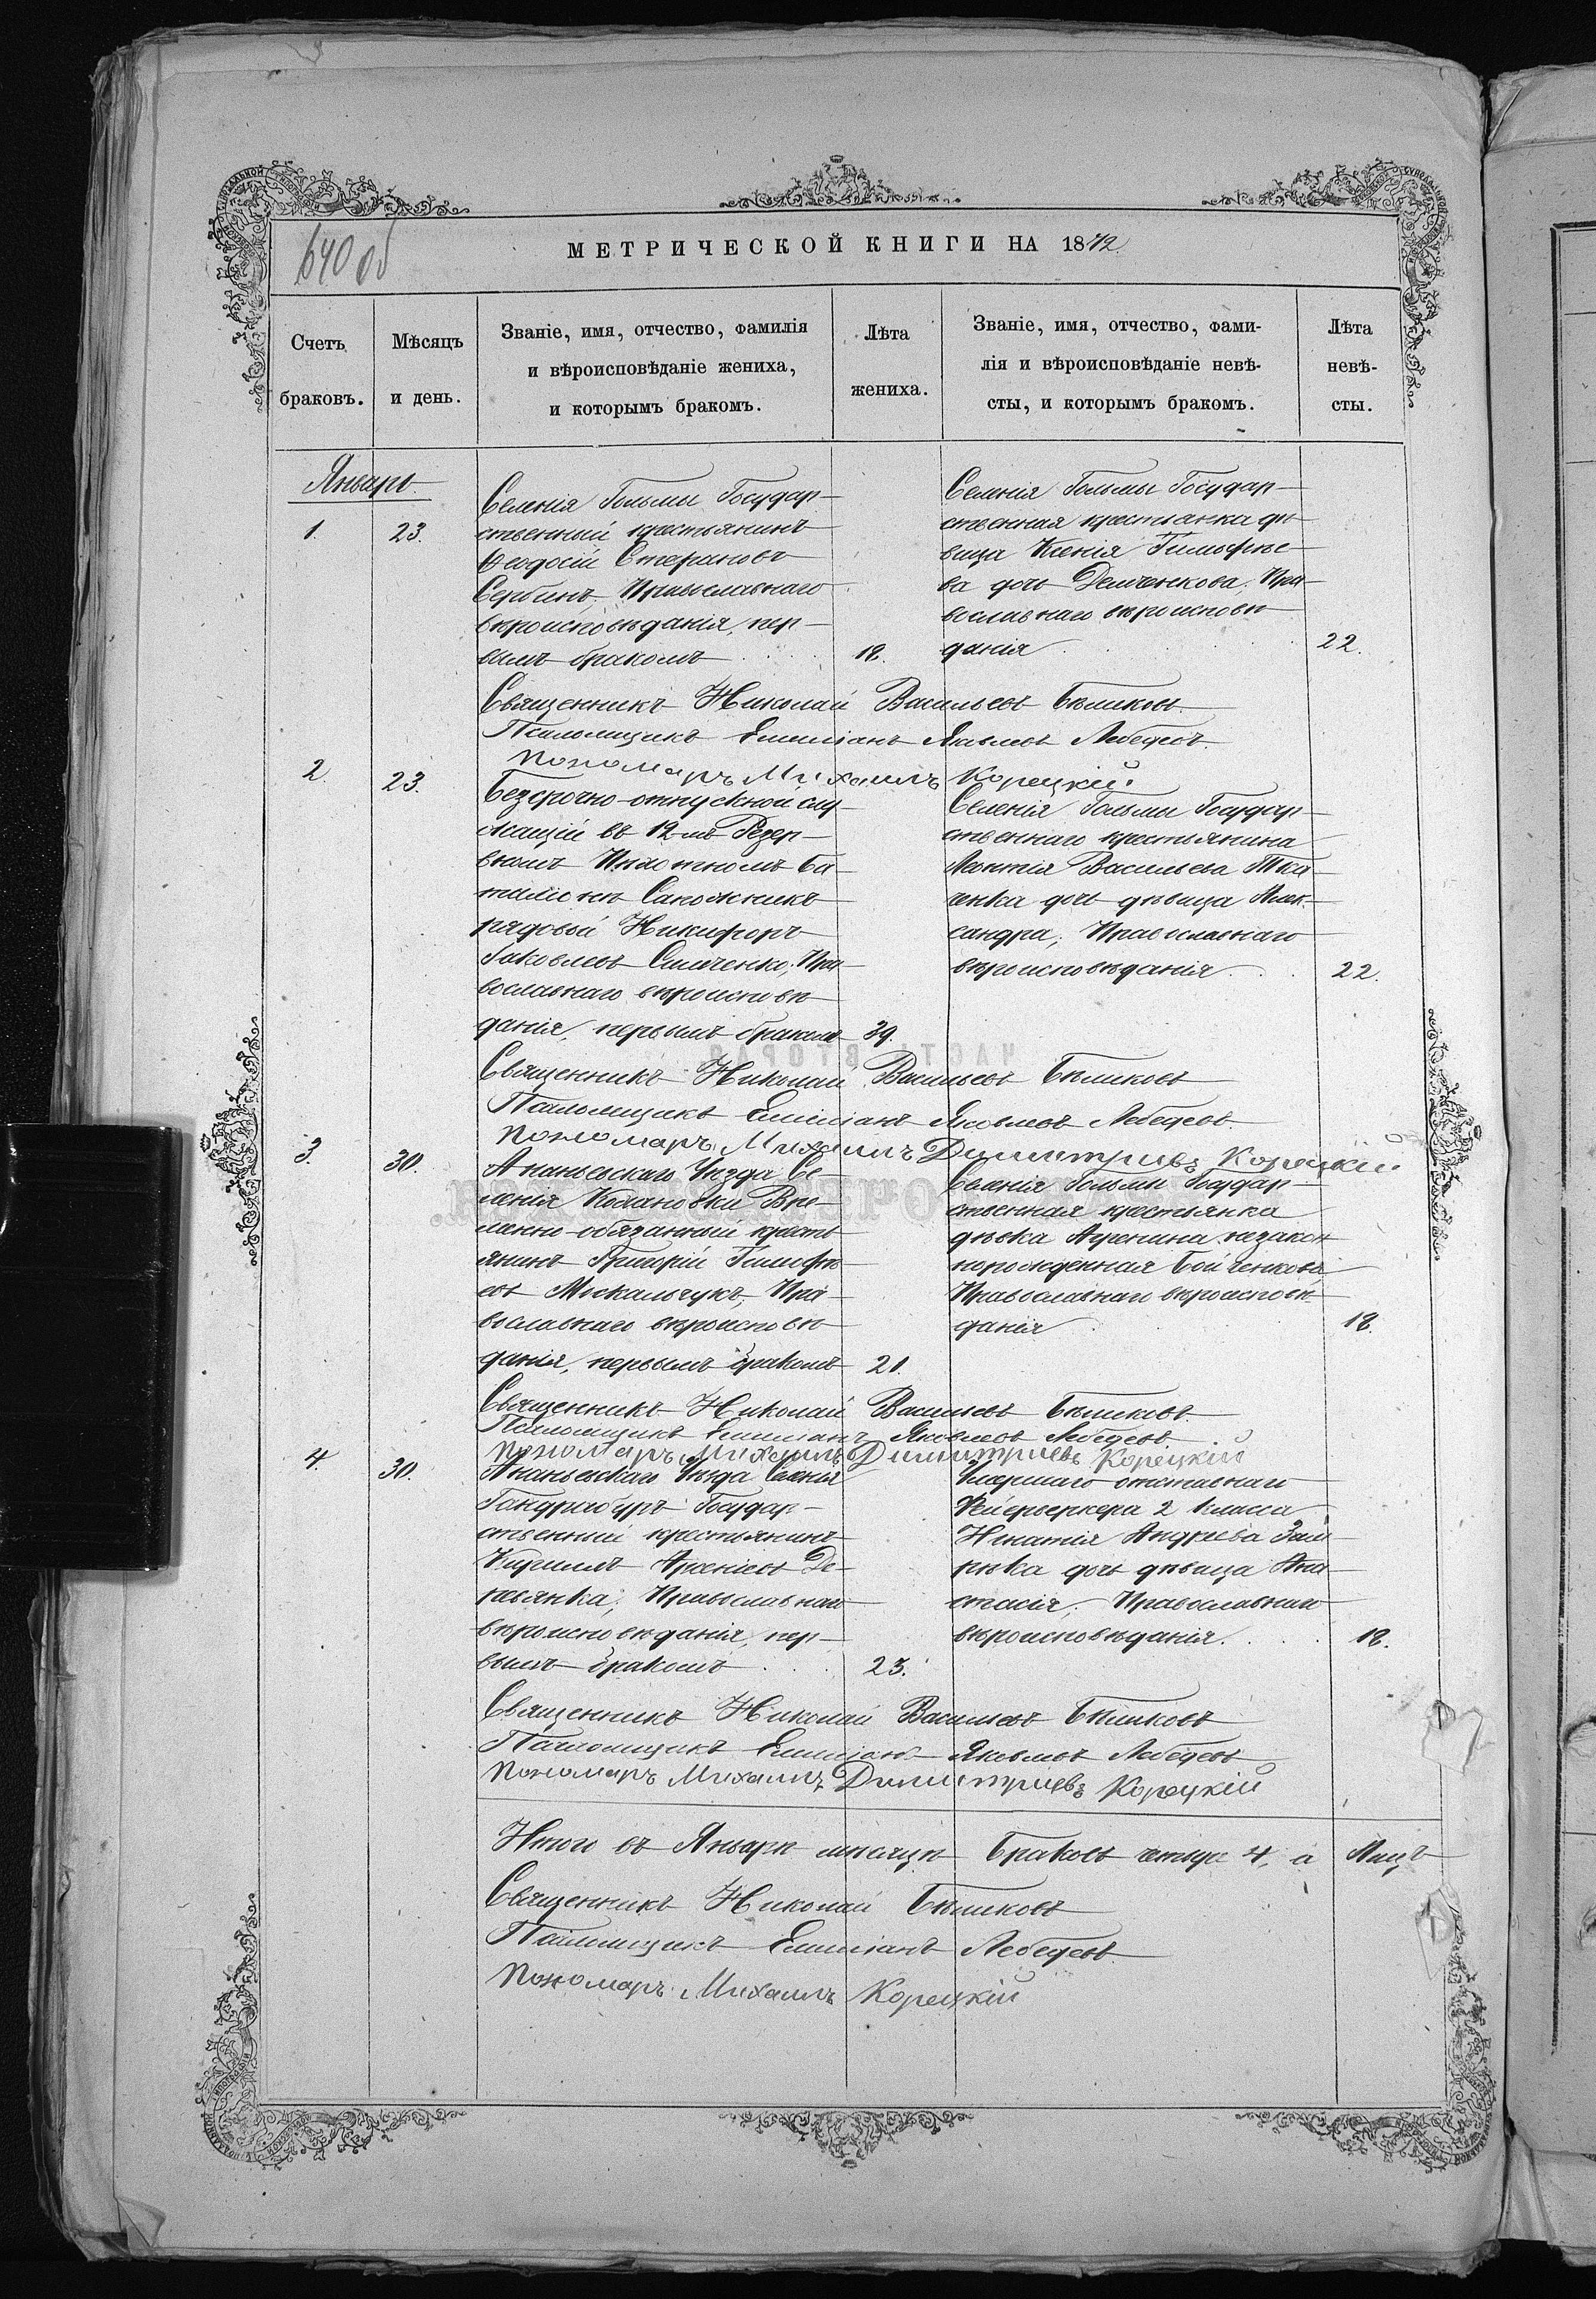 640 об
МЕТРИЧЕСКОЙ КНИГИ НА 1872
Счетъ браковъ.
Мѣсяцъ и день.
Званіе, имя, отчество, фамилія
и вѣроисповѣданіе жениха,
и которымъ бракомъ.
Лѣта жениха.
Званіе, имя, отчество, фами-
лія и вѣроисповѣданіе невѣ-
сты, и которымъ бракомъ.
Лѣта
невѣ-
сты.
Январь
1.
23.
Селенія Гольмы Государ-
ственный крестьянинъ
Ѳеодосій Стефановъ
Сербинъ, Православнаго
вѣроисповѣданія, пер-
вымъ бракомъ
18.
Селенія Гольмы Государ-
ственная крестьянка дѣ-
вица Ксенія Тимофѣе-
ва дочь Демченкова, Пра-
вославнаго вѣроисповѣ-
данія
22.
Священникъ Николай Васильевъ Бѣликовъ
Псаломщикъ Емиліанъ Яковлевъ Лебедевъ
Пономарь Михаилъ Корецкій.
2.
23.
Безсрочно-отпускной слу-
жащій въ 12-мъ Резер-
вномъ Пѣхотномъ ба-
таліонѣ Сапожникъ
рядовой Никифоръ
Яковлевъ Симченко, Пра-
вославнаго вѣроисповѣ-
данія, первымъ бракомъ
39.
Селенія Гольмы Государ-
ственнаго крестьянина
Леонтія Васильева Тка-
ченка дочь дѣвица Алек-
сандра, Православнаго
вѣроисповѣданія
22.
Священникъ Николай Васильевъ Бѣликовъ
Псаломщикъ Емиліанъ Яковлевъ Лебедевъ
Пономарь Михаилъ Димитріевъ Корецкій
3.
30.
Ананьевскаго Уѣзда Се-
ленія Временно-обязанный кресть-
янинъ Григорій Тимофѣ-
евъ Москальчукъ, Пра-
вославнаго вѣроисповѣ-
данія, первымъ бракомъ
21.
Селенія Гольмы Государ-
ственная крестьянка
дѣвка Агрепина незакон-
норожденная Бойченкова
Православнаго вѣроисповѣ-
данія
18.
Священникъ Николай Васильевъ Бѣликовъ
Псаломщикъ Емиліанъ Яковлевъ Лебедевъ
Пономарь Михаилъ Димитріевъ Корецкій
4.
30.
Ананьевскаго Уѣзда Селенія
Гандрабуръ Государ-
ственный крестьянинъ
Кириллъ Арсеніевъ
Православнаго
вѣроисповѣданія, пер-
вымъ бракомъ
23.
Умершаго отставнаго
Фейерверкера 2 класса
Игнатія Андреева
дочь дѣвица Ана-
стасія, Православнаго
вѣроисповѣданія
18.
Священникъ Николай Васильевъ Бѣликовъ
Псаломщикъ Емиліанъ Яковлевъ Лебедевъ
Пономарь Михаилъ Димитріевъ Корецкій
Итого въ Январѣ мѣсяцѣ браковъ четыре 4, а лицъ
Священникъ Николай Бѣликовъ
Псаломщикъ Емиліанъ Лебедевъ
Пономарь Михаилъ Корецкій